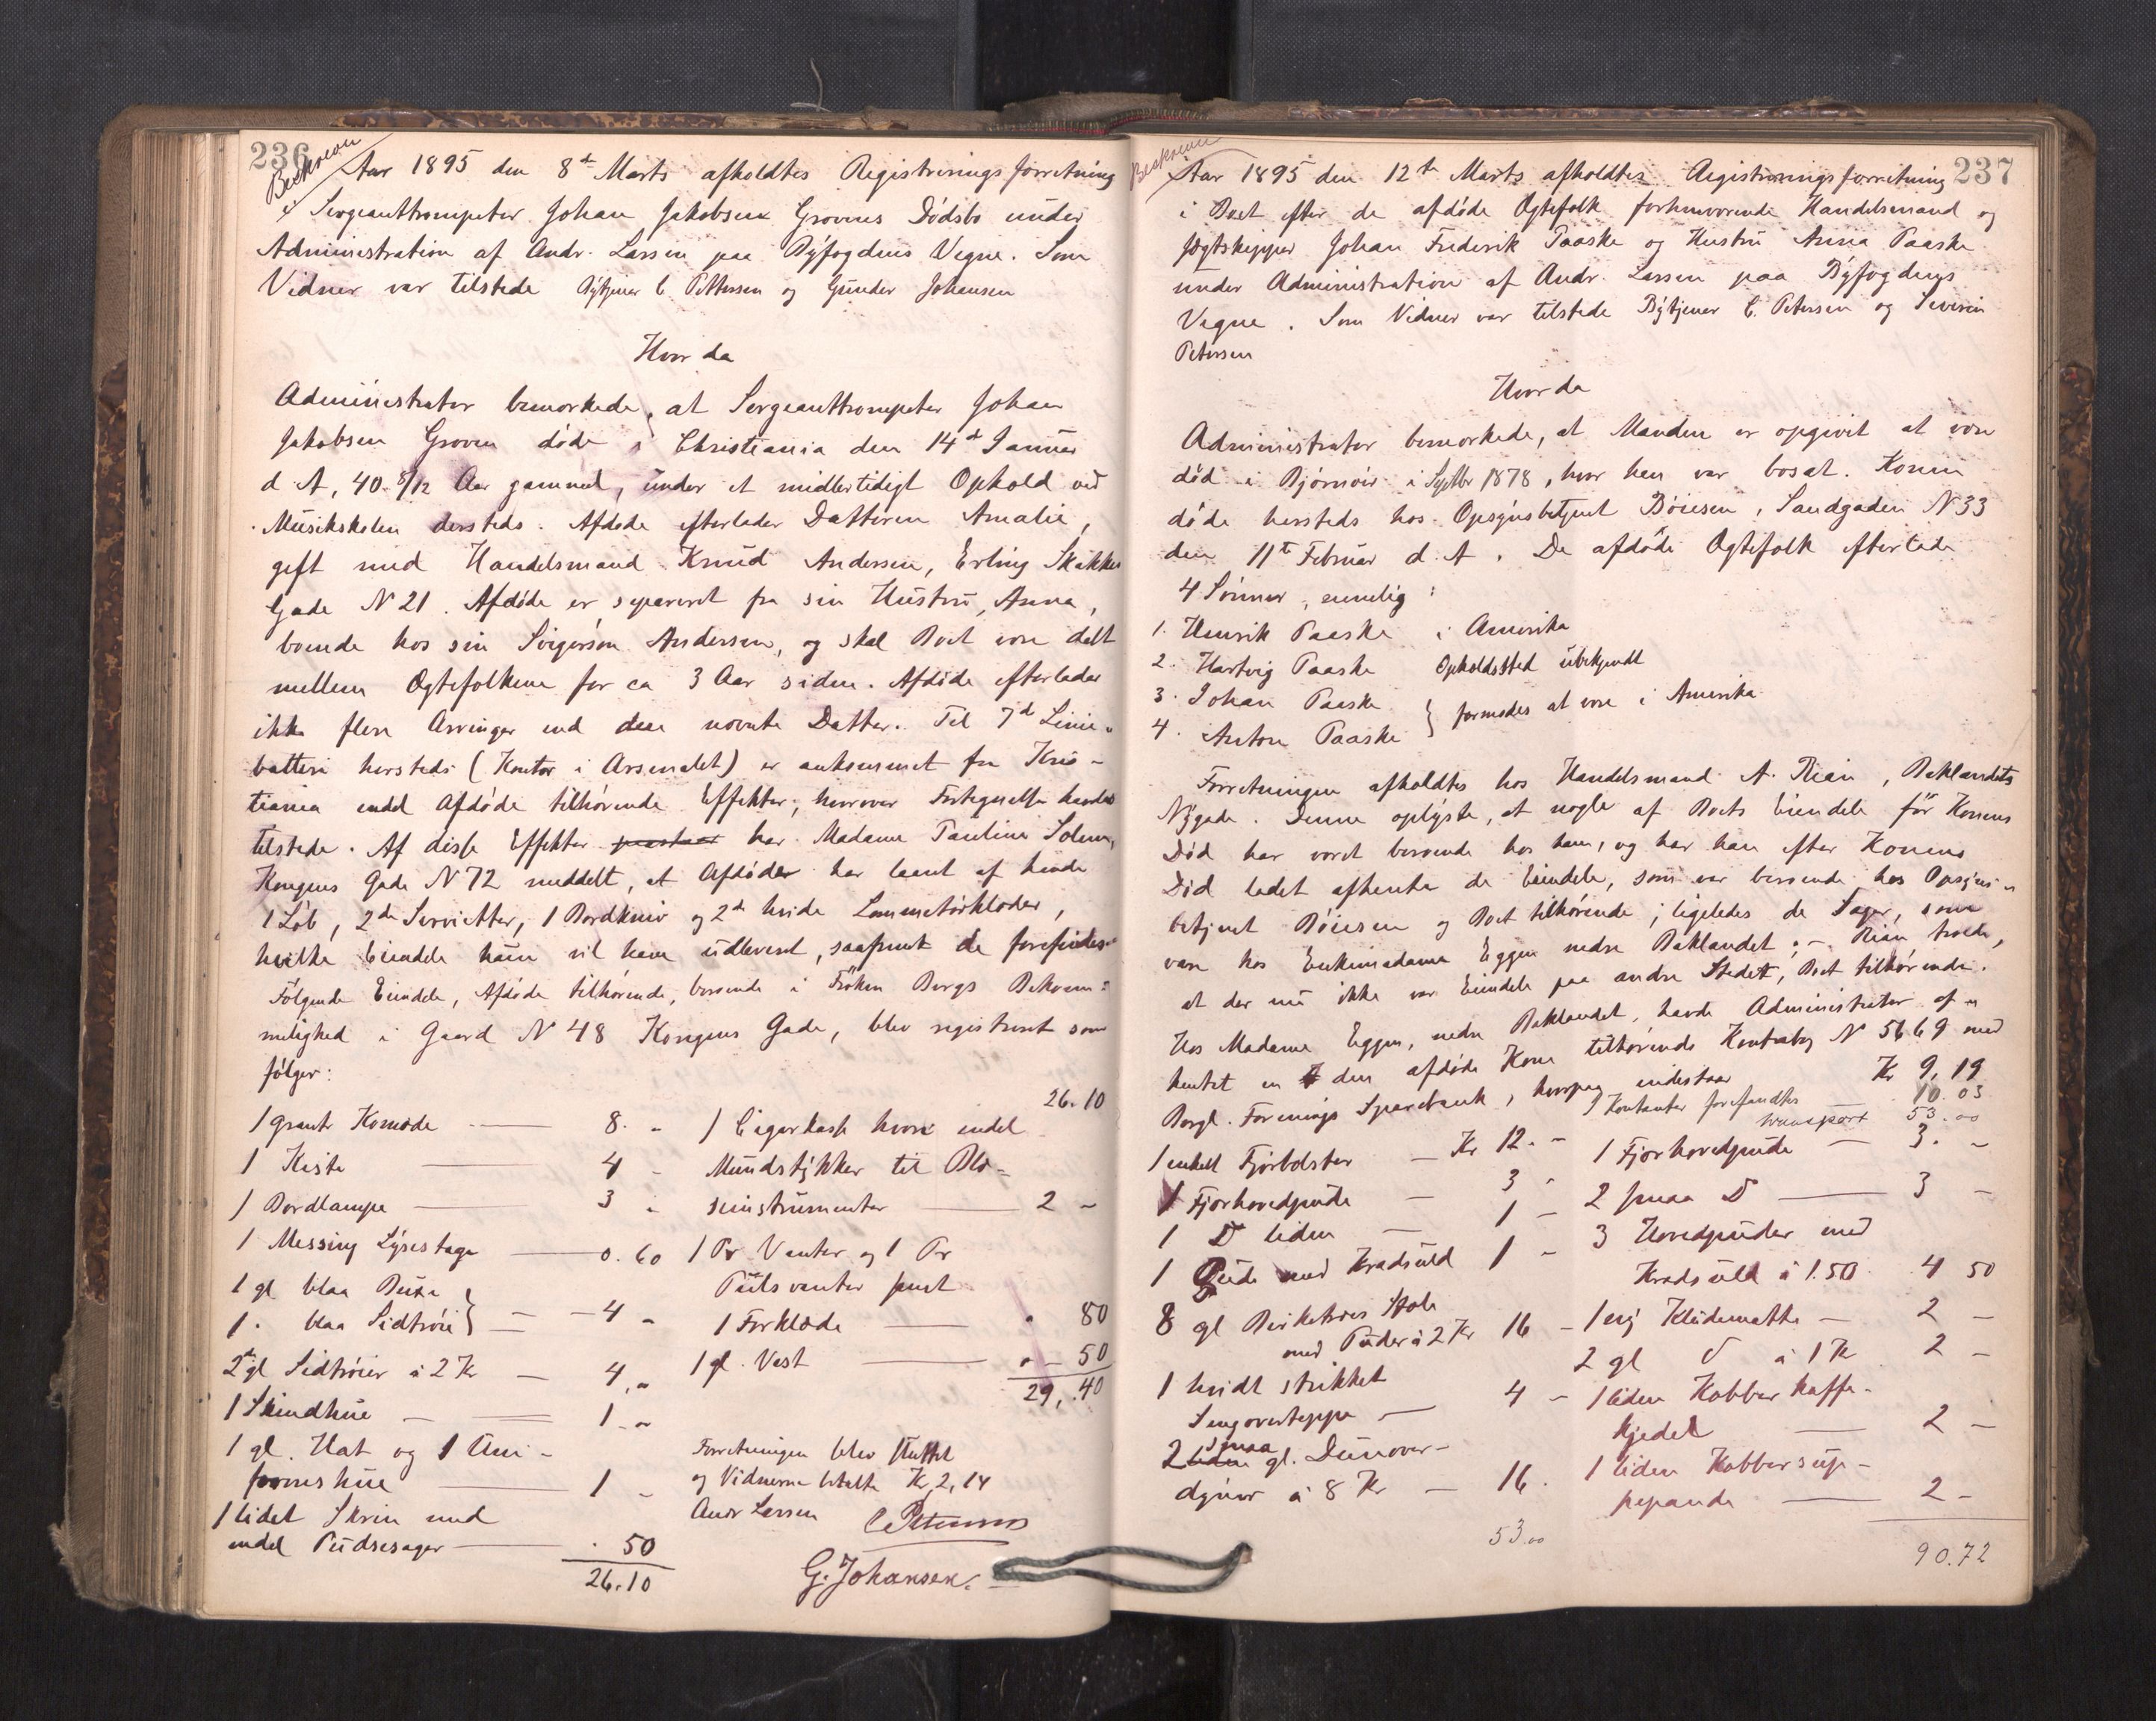 236
Beskreven
Aar 1895 den 8de Marts afholdtes Registreringsforretning
i Sergeanttrompeter Johan Jakobsen Grovens Dödsbo under
Administration af Andr. Larsen paa Byfogdens Vegne. Som
Vidner var tilstede Bytjener C. Pettersen og Gunder Johansen
Hvor da
Administrator bemærkede, at Sergeanttrompeter Johan
Jakobsen Groven döde i Christiania den 14de Januar
d A, 40 8/12 Aar gammel, under et midlertidigt Ophold ved
Musikskolen dersteds. Afdøde efterlader Datteren Amalie,
gift med Handelsmand Knud Andersen, Erling Skakkes
Gade N 21. Afdöde er separeret fra sin Hustru, Anna,
boende hos sin Svigersön Andersen, og skal Boet være delt
mellem Ægtefolkene for ca 3 Aar siden. Afdöde efterlader
ikke flere Arvinger end den nævnte Datter. Til 7de Linie-
batteri hersteds (Kontor i Arsenalet) er ankommet fra Kris-
tiania endel Afdöde tilhörende Effekter, hvorover Fortegnelse havdes
tilstede. Af disse Effekter har Madame Pauline Solem,
Kongens Gade N 72 meddelt, at Afdöde har laant af hende
1 Löb, 2de Servietter, 1 Bordkniv og 2de hvide Lommetörklæder,
hvilke Eiendele hun vil have udleveret, saafremt de forefindes.
Fölgende Eiendele, Afdöde tilhörende, beroende i Fröken Bergs Bekvem-
melighed i Gaard N 48 Kongens Gade, blev registreret som
følger:
1 graat Komode — 8. -
1 Kiste — 4 -
1 Bordlampe — 3 -
1 Messing Lysestage — 0.60
1 gl blaa Buxe }
1 . blaa Sidtröie } — 4 -
2de gl Sidtröier à 2 Kr — 4 -
1 Skindhue — 1 -
1 gl. Hat og 1 Uni-
formshue — 1 -
1 lidet Skrin med
endel Pudsesager — . 50
26.10
26.10
1 Cigarkasse hvori endel
Mundstykker til Blæ-
seinstrumenter — 2 -
1 Pr Vanter og 1 Pr
Pulsvanter samt
1 Forklæde — . 80
1 gl. Vest — . 50
29,.40
Forretningen blev sluttet
og Vidnerne betalte Kr 2,14
Andr Larsen C Pettersen
G. Johansen.
237
Beskreven
Aar 1895 den 12te Marts afholdtes Registreringsforretning
i Boet efter de afdöde Ægtefolk forhenværende Handelsmand og
Jægtskipper Johan Frederik Paaske og Hustru Anna Paaske
under Administration af Andr. Larsen paa Byfogdens
Vegne. Som Vidner var tilstede Bytjener C. Petersen og Severin
Petersen
Hvor da
Administrator bemærkede, at Manden er opgivet at være
död i Björnör i Septbr 1878, hvor han var bosat. Konen
döde hersteds hos Opsynsbetjent Böiesen, Sandgaden N 33
den 11te Februar d. A. De afdöde Ægtefolk efterlade
4 Sönner, nemlig:
1. Henrik Paaske i Amerika
2. Hartvig Paaske Opholdssted ubekjendt
3. Johan Paaske }
4. Anton Paaske } formodes at være i Amerika
Forretningen afholdtes hos Handelsmand A. Rian, Baklandets
Nygade. Denne oplyste, at nogle af Boets Eiendele för Konens
Död har været beroende hos ham, og har han efter Konens
Död ladet afhente de Eiendele, som var beroende hos Opsyns-
betjent Böiesen og Boet tilhörende; ligeledes de Sager, som
vare hos Enkemadame Eggen nedre Baklandet; - Rian troede,
at der nu ikke var Eiendele paa andre Steder, Boet tilhörende.
Hos Madame Eggen, nedre Baklandet, havde Administrator af-
hentet en den afdöde Kone tilhörende Kontrabog N 5669 med
Borgl. Forenings Sparebank, hvorpaa indestaar Kr 9,19
I Kontanter forefandtes — 10.03
1 enkelt Fjörbolster — Kr 12. -
1 Fjörhovedpude — 3 -
1 D liden — 1 -
1 Pude med Krøduld 1 -
8 gl Birketræs Stole
med Puder à 2 Kr 16 -
1 hvidt strikket
Sengovertæppe — 4 -
2 smaa gl. Dunover-
dyner à 8 Kr — 16.
53.00
transport 53.00
1 Fjörhovedpude — 3. -
2 smaa D — 3 -
3 Hovedpuder med
Krøduld à 1.50 4 50
1 ny Kludematte — 2 -
2 gl D à 1 Kr 2 -
1 liden Kobber kaffe-
kjedel — 2 -
1 liden Kobbersup-
pepande — 2 -
90.72